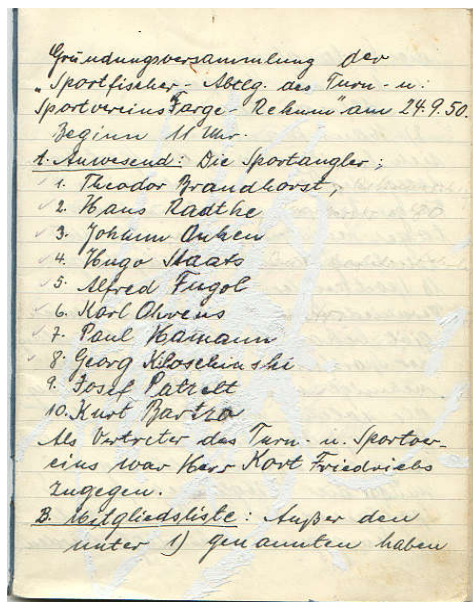 Gründungsversammlung der
„Sportfischer-Abtlg. des Turn- u.
Sportvereins Farge-Rekum" am 24.9.50.
Beginn 11 Uhr.
1. Anwesend: Die Sportangler;
1. Theodor Brandhorst,
2. Hans Radthe
3. Johann Onken
4. Hugo Staats
5. Alfred Fugol
6. Karl Ohrens
7. Paul Hamann
8. Georg Kloschinski
9. Josef Patzelt
10. Kurt Bartza
Als Vertreter des Turn- u. Sportver-
eins war Herr Kort Friedrichs
zugegen.
B. Mitgliedsliste: Außer den
unter 1) genannten haben